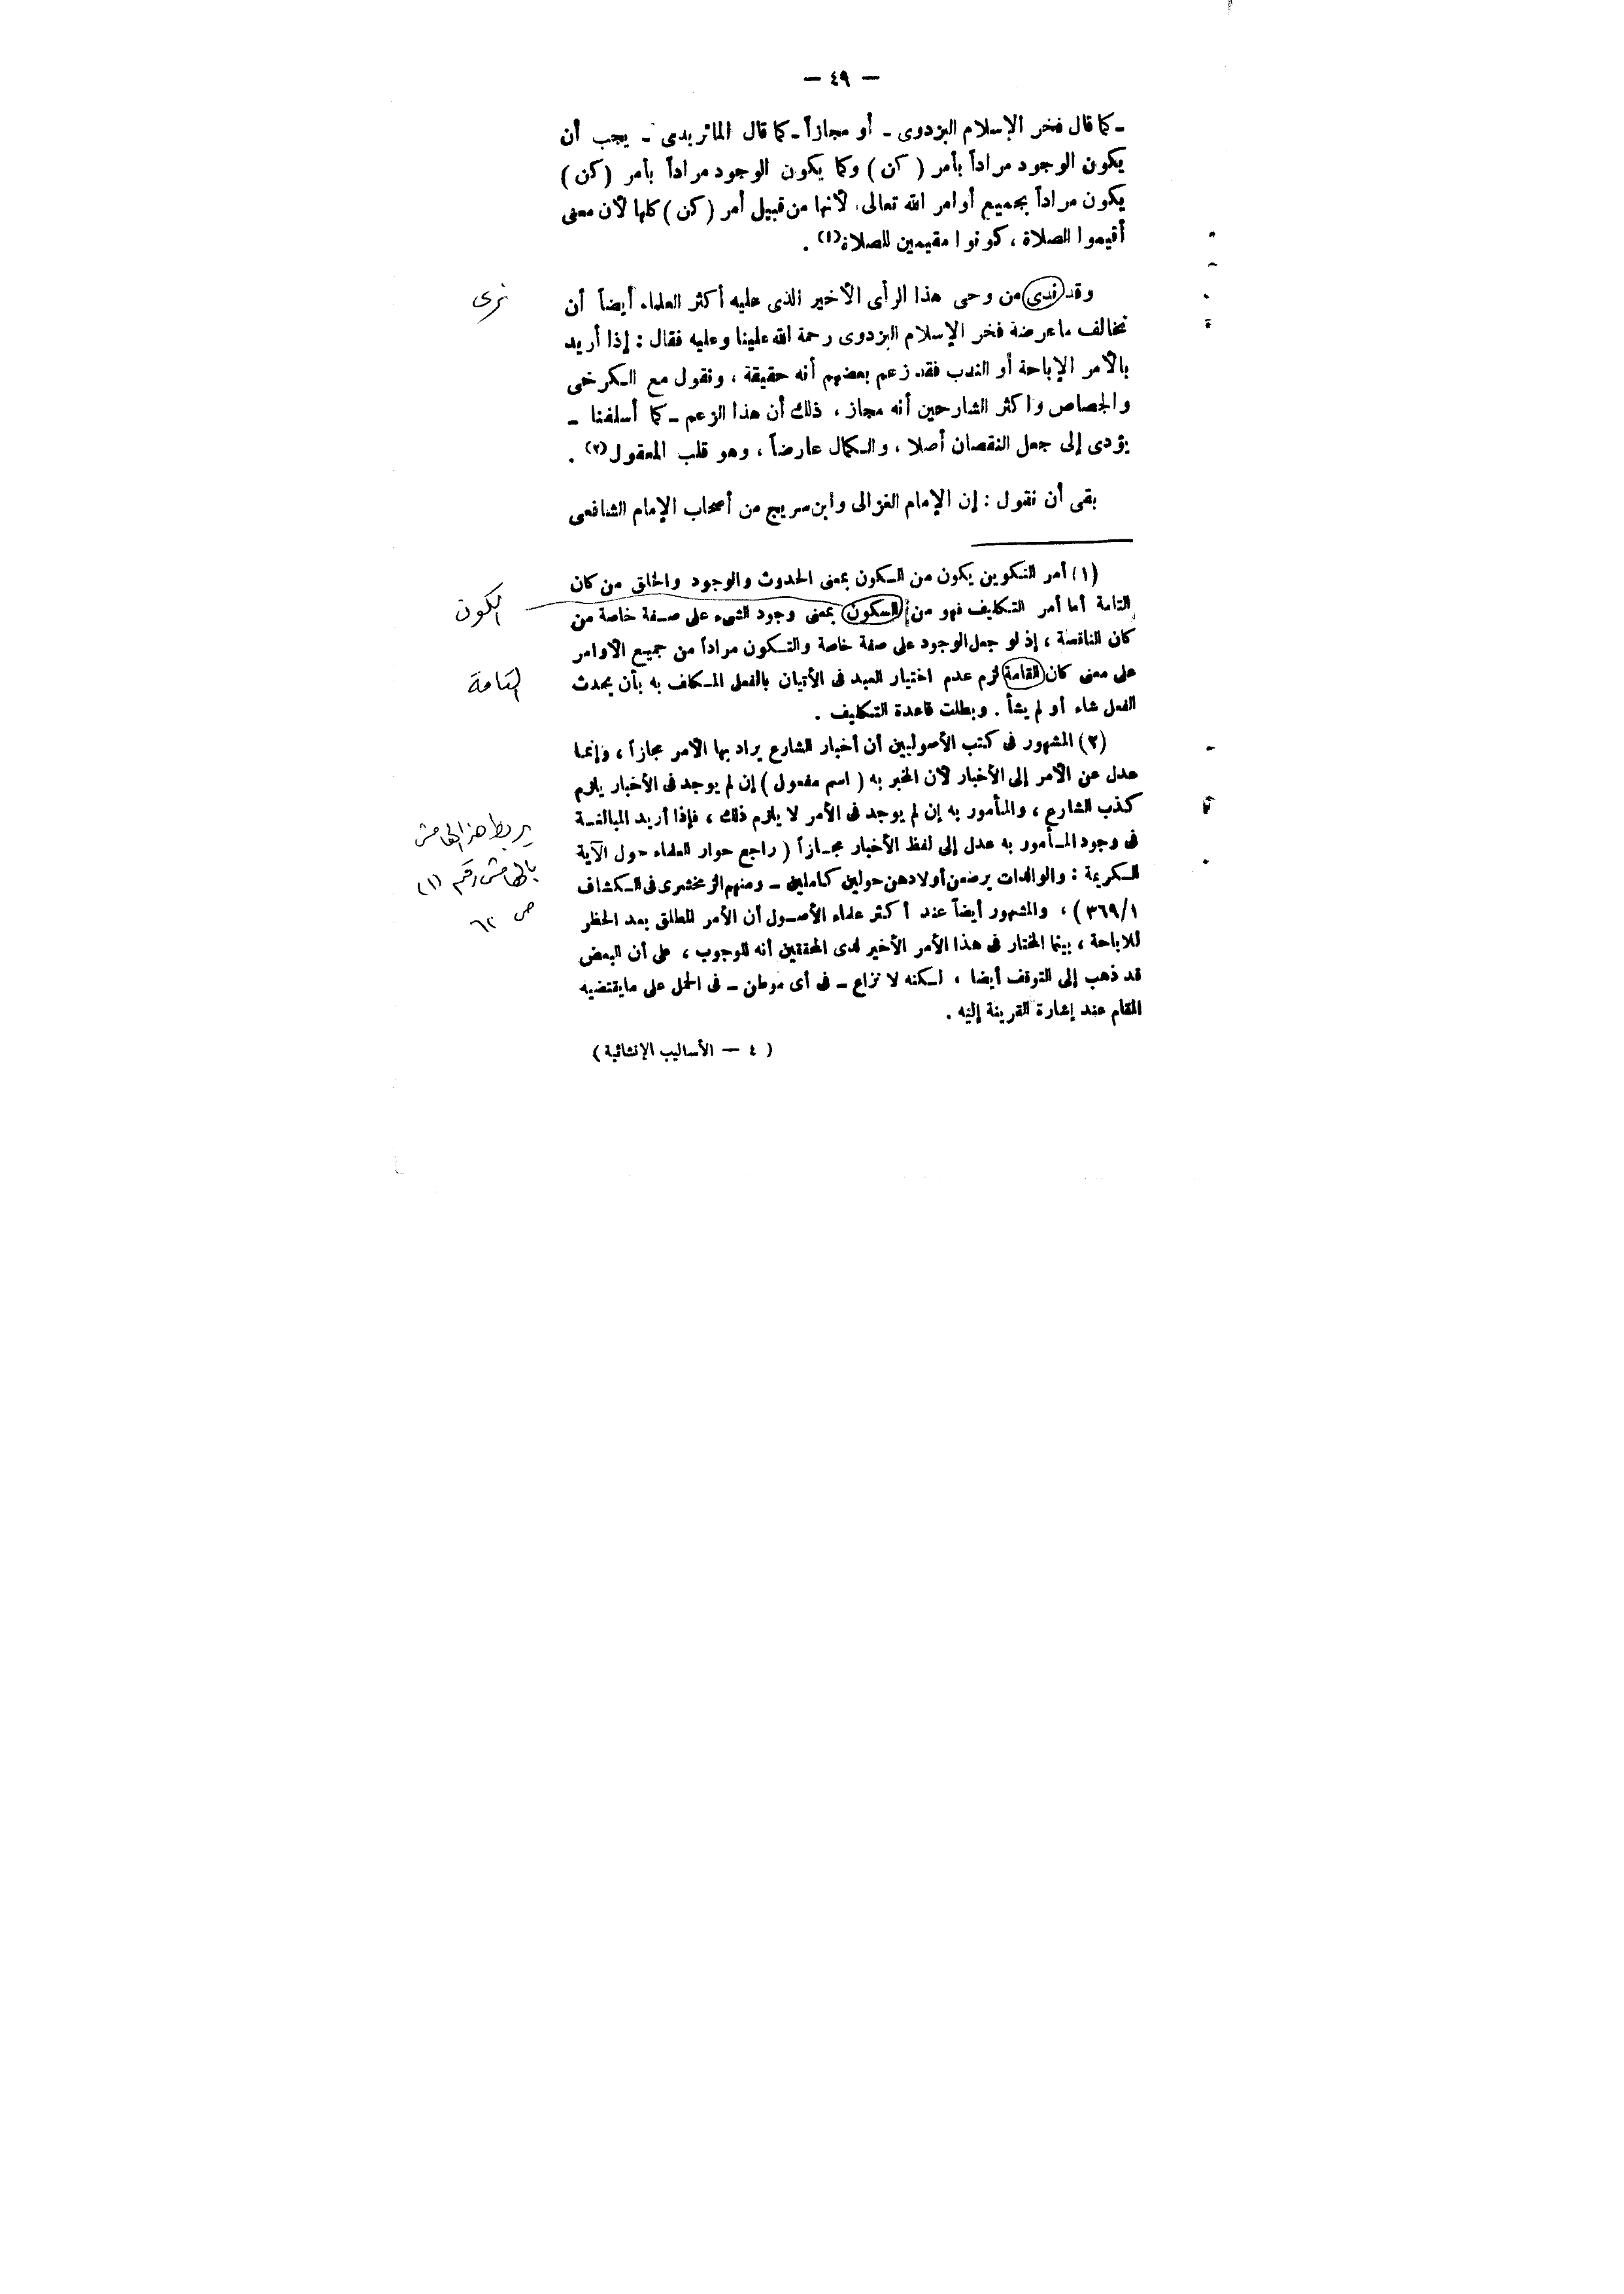 — ٤٩ —
ـ كما قال فخر الإسلام البزدوى ـ أو مجازاً ـ كما قال الماتريدى ـ يجب أن
يكون الوجود مراداً بأمر ( كن ) وكما يكون الوجود مراداً بأمر (كن )
يكون مراداً بجميع أوامر الله تعالى، لأنها من قبيل أمر (كن ) كلها لأن معنى
أقيموا الصلاة ، كونوا مقيمين للصلاة(١) .
وقد ندى من وحى هذا الرأى الأخير الذى عليه أكثر العلماء أيضاً أن
نرى
نخالف ما عرضه فخر الإسلام البزدوى رحمة الله علينا وعليه فقال : إذا أريد
بالأمر الإباحة أو الندب فقد زعم بعضهم أنه حقيقة ، ونقول مع الكرخى
والجصاص وأكثر الشارحين أنه مجاز ، ذلك أن هذا الزعم ـ كما أسلفنا ـ
يؤدى إلى جعل النقصان أصلا ، والكمال عارضاً ، وهو قلب المعقول(٢) .
بقى أن نقول : إن الإمام الغزالى وابن سريج من أصحاب الإمام الشافعى
(١) أمر التكوين يكون من الكون بمعنى الحدوث والوجود والخلق من كان
التامة أما أمر التكليف فهو من السكون بمعنى وجود الشىء على صفة خاصة من
الكون
كان الناقصة ، إذ لو جعل الوجود على صفة خاصة والتكون مراداً من جميع الأوامر
على معنى كان القامة لزم عدم اختيار العبد فى الأتيان بالفعل المكلف به بأن يحدث
التامة
الفعل شاء أو لم يشأ . وبطلت قاعدة التكليف .
(٢) المشهور فى كتب الأصوليين أن أخبار الشارع يراد بها الأمر مجازاً ، وإنما
عدل عن الأمر إلى الأخبار لأن المخبر به ( اسم مفعول ) إن لم يوجد فى الأخبار يلزم
كذب الشارع ، والمأمور به إن لم يوجد فى الأمر لا يلزم ذلك ، فإذا أريد المبالغة
فى وجود المأمور به عدل إلى لفظ الأخبار مجازاً ( راجع حوار العلماء حول الآية
الكريمة : والوالدات يرضعن أولادهن حولين كاملين ـ ومنهم الزمخشرى فى الكشاف
١/٣٦٩ ) ، والمشهور أيضاً عند أكثر علماء الأصول أن الأمر المطلق بعد الحظر
للاباحة ، بينما المختار فى هذا الأمر الأخير لدى المحققين أنه للوجوب ، على أن البعض
قد ذهب إلى التوقف أيضا ، لكنه لا نزاع ـ فى أى موطن ـ فى الحمل على ما يقتضيه
المقام عند إشارة القرينة إليه .
يربط هذا الهامش
بالهامش رقم (١)
ص ٦٢
( ٤ — الأساليب الإنشائية )